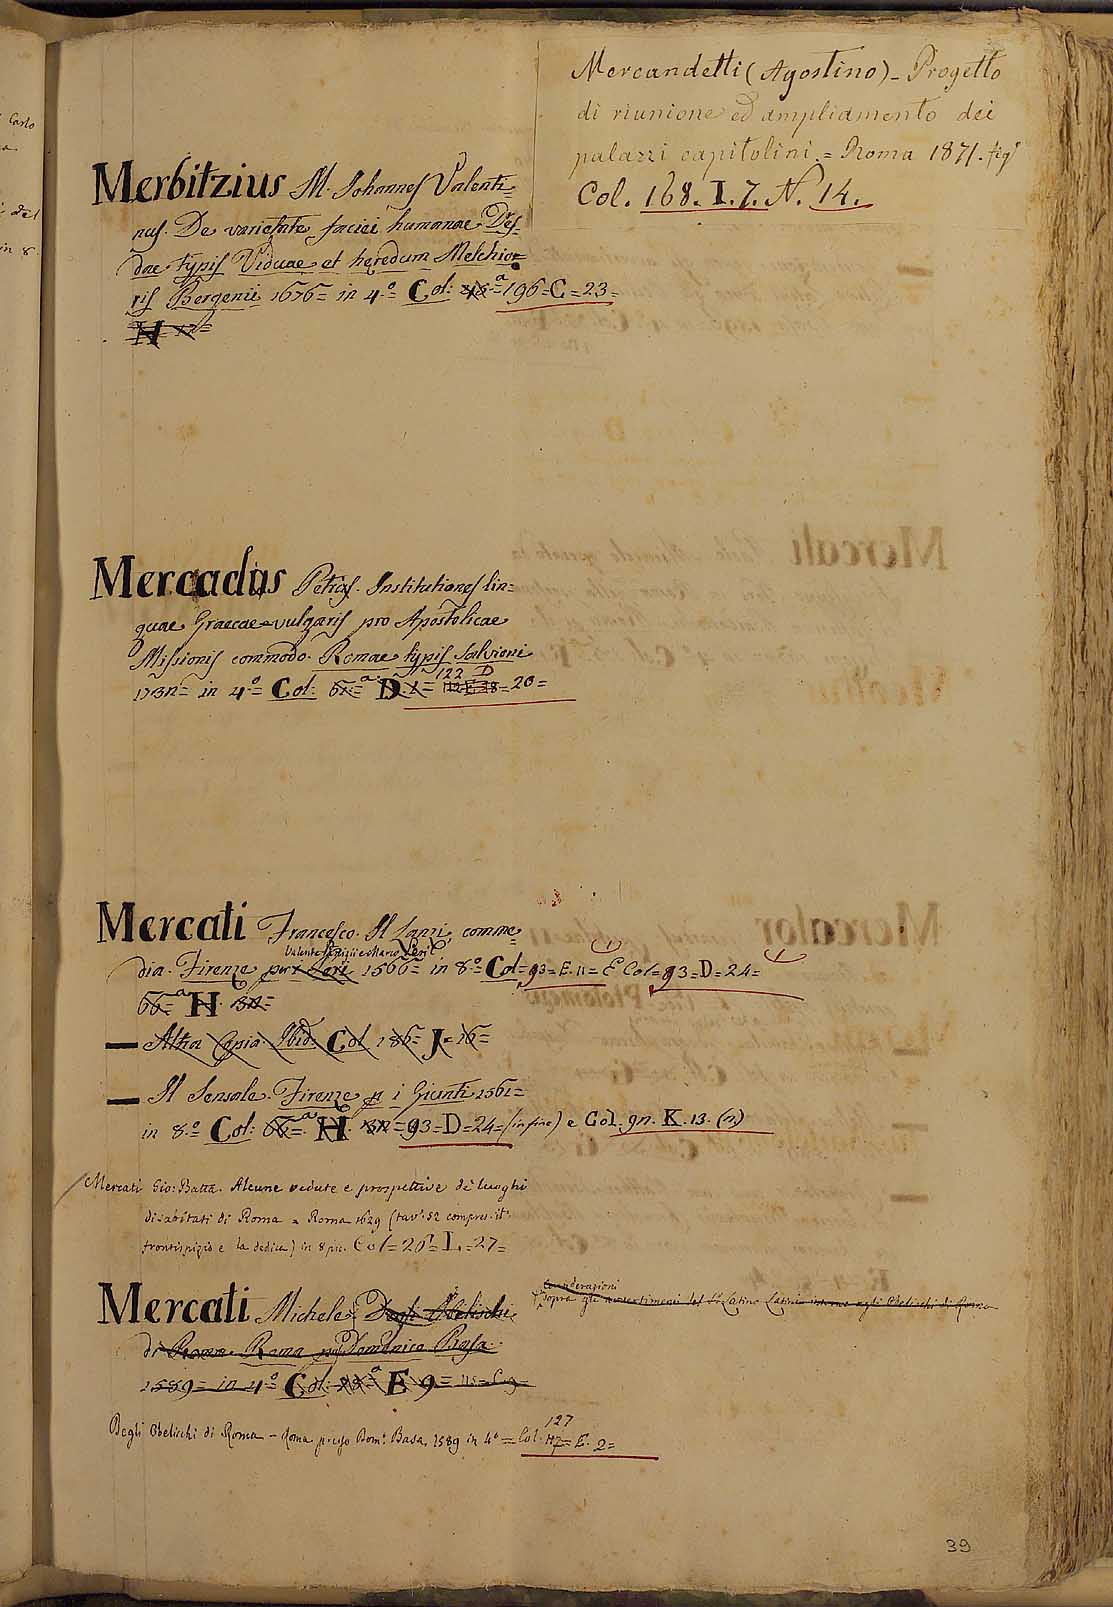 Carlo
del
in 8.
Mercandetti (Agostino) - Progetto
di riunione ed ampliamento dei
palazzi capitolini. = Roma 1871. fig.
Col. 168. I. 7. N. 14.
Merbitzius M. Johannes Valenti=
nus. De varietate faciei humanae. Dres=
dae typis Viduae et heredum Melchio=
ris Bergenii 1676= in 4.º Col: 196=C=23=
Mercadus Petrus. Institutiones lin=
guae Graecae=vulgaris pro Apostolicae
Missionis commodo. Romae typis Salvioni
122 D
1732= in 4.º= Col: D. 20=
Mercati Francesco. Il Lanzi, comme=
Valente Panizii e Marco Peri
dia. Firenze per 1566= in 8.º Col= 93=E.11= E Col= 93=D=24=
66=ª H.
— Altra Copia. Ibid. Col 186= J=16=
— Il Sensale. Firenze p i Giunti 1561=
in 8.º Col: 66=ª H. 93=D=24= (in fine) e Col. 92. K. 13. (2)
Mercati Gio: Batta. Alcune vedute e prospettive de luoghi
disabitati di Roma = Roma 1629 (tav. 52 compres. il
frontispizio e la dedica) in 8 pic. Col= 20 L=27=
Considerazioni
Mercati Michele. Degli Obelischi sopra gli avvertimenti del Sr. Latino Latini intorno agli Obelischi di Roma
di Roma. Roma per Domenico Basa.
1589= in 4.º Col: E 9=
127
Degli Obelischi di Roma — Roma presso Dom.º Basa, 1589 in 4º = Col. 117= E. 2=
39